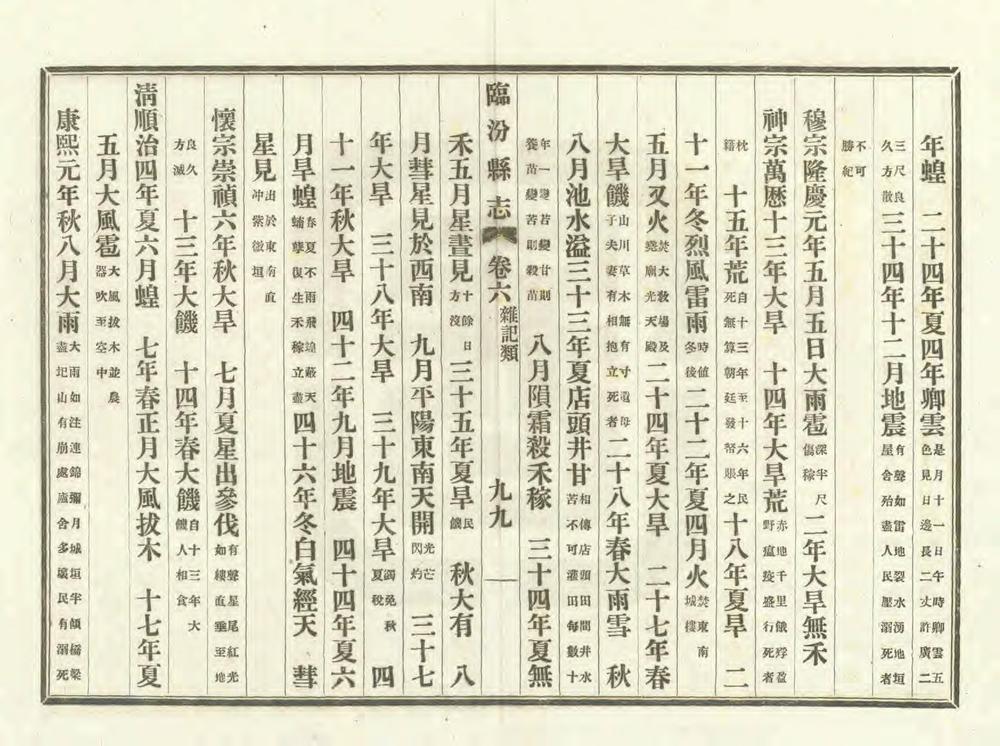 年蝗 二十四年夏四年卿雲是月十一日午時卿雲五色見日邊長二丈許廣二
三尺良久方散三十四年十二月地震有聲如雷地裂水湧地垣屋舍殆盡人民壓溺死者
不可勝紀
穆宗隆慶元年五月五日大雨雹深半尺傷稼 二年大旱無禾
神宗萬歷十三年大旱 十四年大旱荒赤地千里餓殍盈野瘟疫盛行死者
枕籍 十五年荒自十三年至十六年民死無算朝廷發帑賑之十八年夏旱 二
十一年冬烈風雷雨時値冬後二十二年夏四月火焚東南城樓
五月又火焚大教場及堯廟光天殿二十四年夏大旱 二十七年春
大旱饑山川草木無有寸遺母子夫妻有相抱立死者二十八年春大雨雪 秋
八月池水溢三十三年夏店頭井甘相傳店頭田間井水苦不可灌田每數十
年一變若變甘則養苗變苦則殺苗 八月隕霜殺禾稼 三十四年夏無
臨汾縣志 卷六 雜記類 九九
禾五月星晝見十餘日方沒三十五年夏旱民饑 秋大有 八
月彗星見於西南 九月平陽東南天開光芒閃灼 三十七
年大旱 三十八年大旱 三十九年大旱蠲免秋夏稅 四
十一年秋大旱 四十二年九月地震 四十四年夏六
月旱蝗春夏不雨飛蝗蔽天蝻孽復生禾稼立盡四十六年冬白氣經天 彗
星見出於東有直冲紫微垣
懷宗崇禎六年秋大旱 七月夏星出參伐有聲星尾紅光如縷直垂至地
良久方滅 十三年大饑 十四年春大饑自十三年大饑人相食
清順治四年夏六月蝗 七年春正月大風拔木 十七年夏
五月大風雹大風拔木並農器吹至空中
康熙元年秋八月大雨大雨如注連錦彌月城垣半傾橋梁盡圮山有崩處廬舍多壞民有溺死